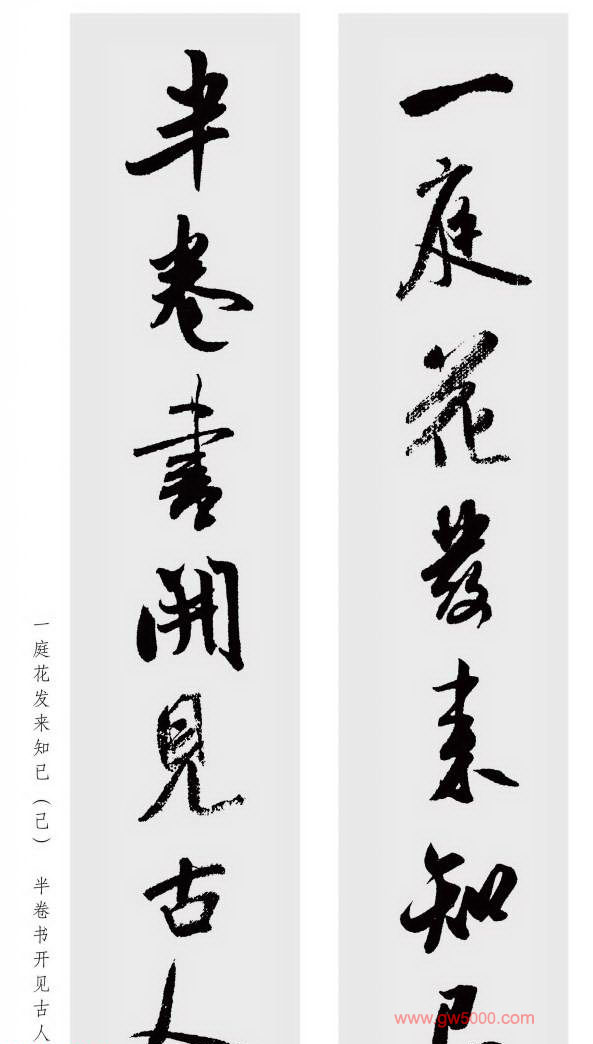 一庭花發来知已
半卷書開見古人
一庭花发来知已（己） 半卷书开见古人
www.gw5000.com